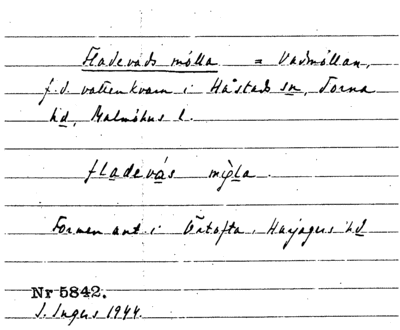 Fladevads mölla = Vadmöllan,
f.d. vattenkvarn i Håstads sn, Torna
hd, Malmöhus l.
fladevás mö̀la.
Formen ant. i Örtofta, Harjagers hd
Nr 5842.
S. Ingers 1944.